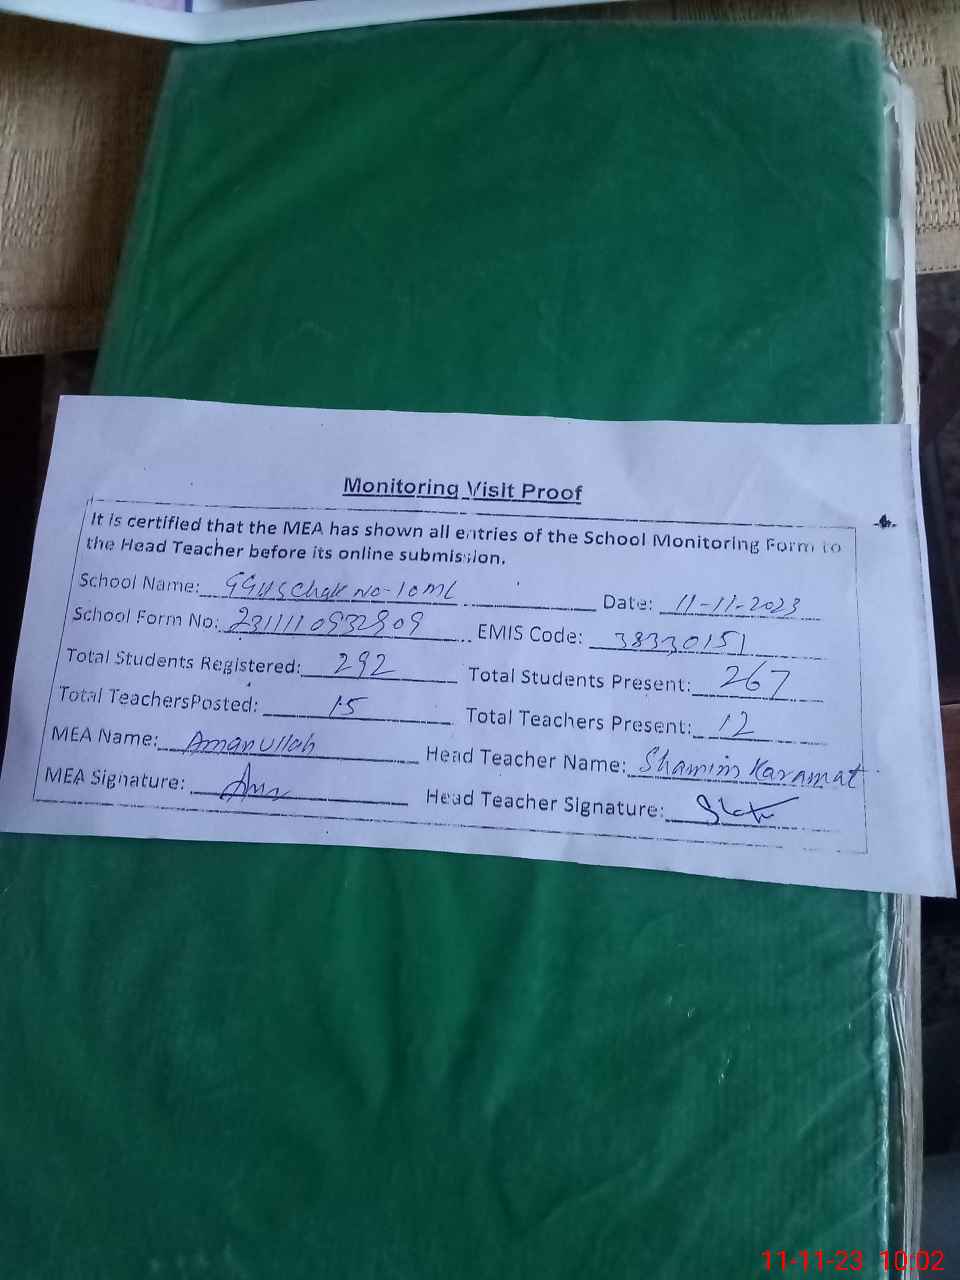 Monitoring Visit Proof
It is certified that the MEA has shown all entries of the School Monitoring Form to
the Head Teacher before its online submission.
School Name: GGHS Chak No-10ML Date: 11-11-2023
School Form No: 2311110932809 EMIS Code: 38330151
Total Students Registered: 292 Total Students Present: 267
Total TeachersPosted: 15 Total Teachers Present: 12
MEA Name: Amanullah Head Teacher Name: Shamim Karamat
MEA Signature: Head Teacher Signature:
11-11-23 10:02